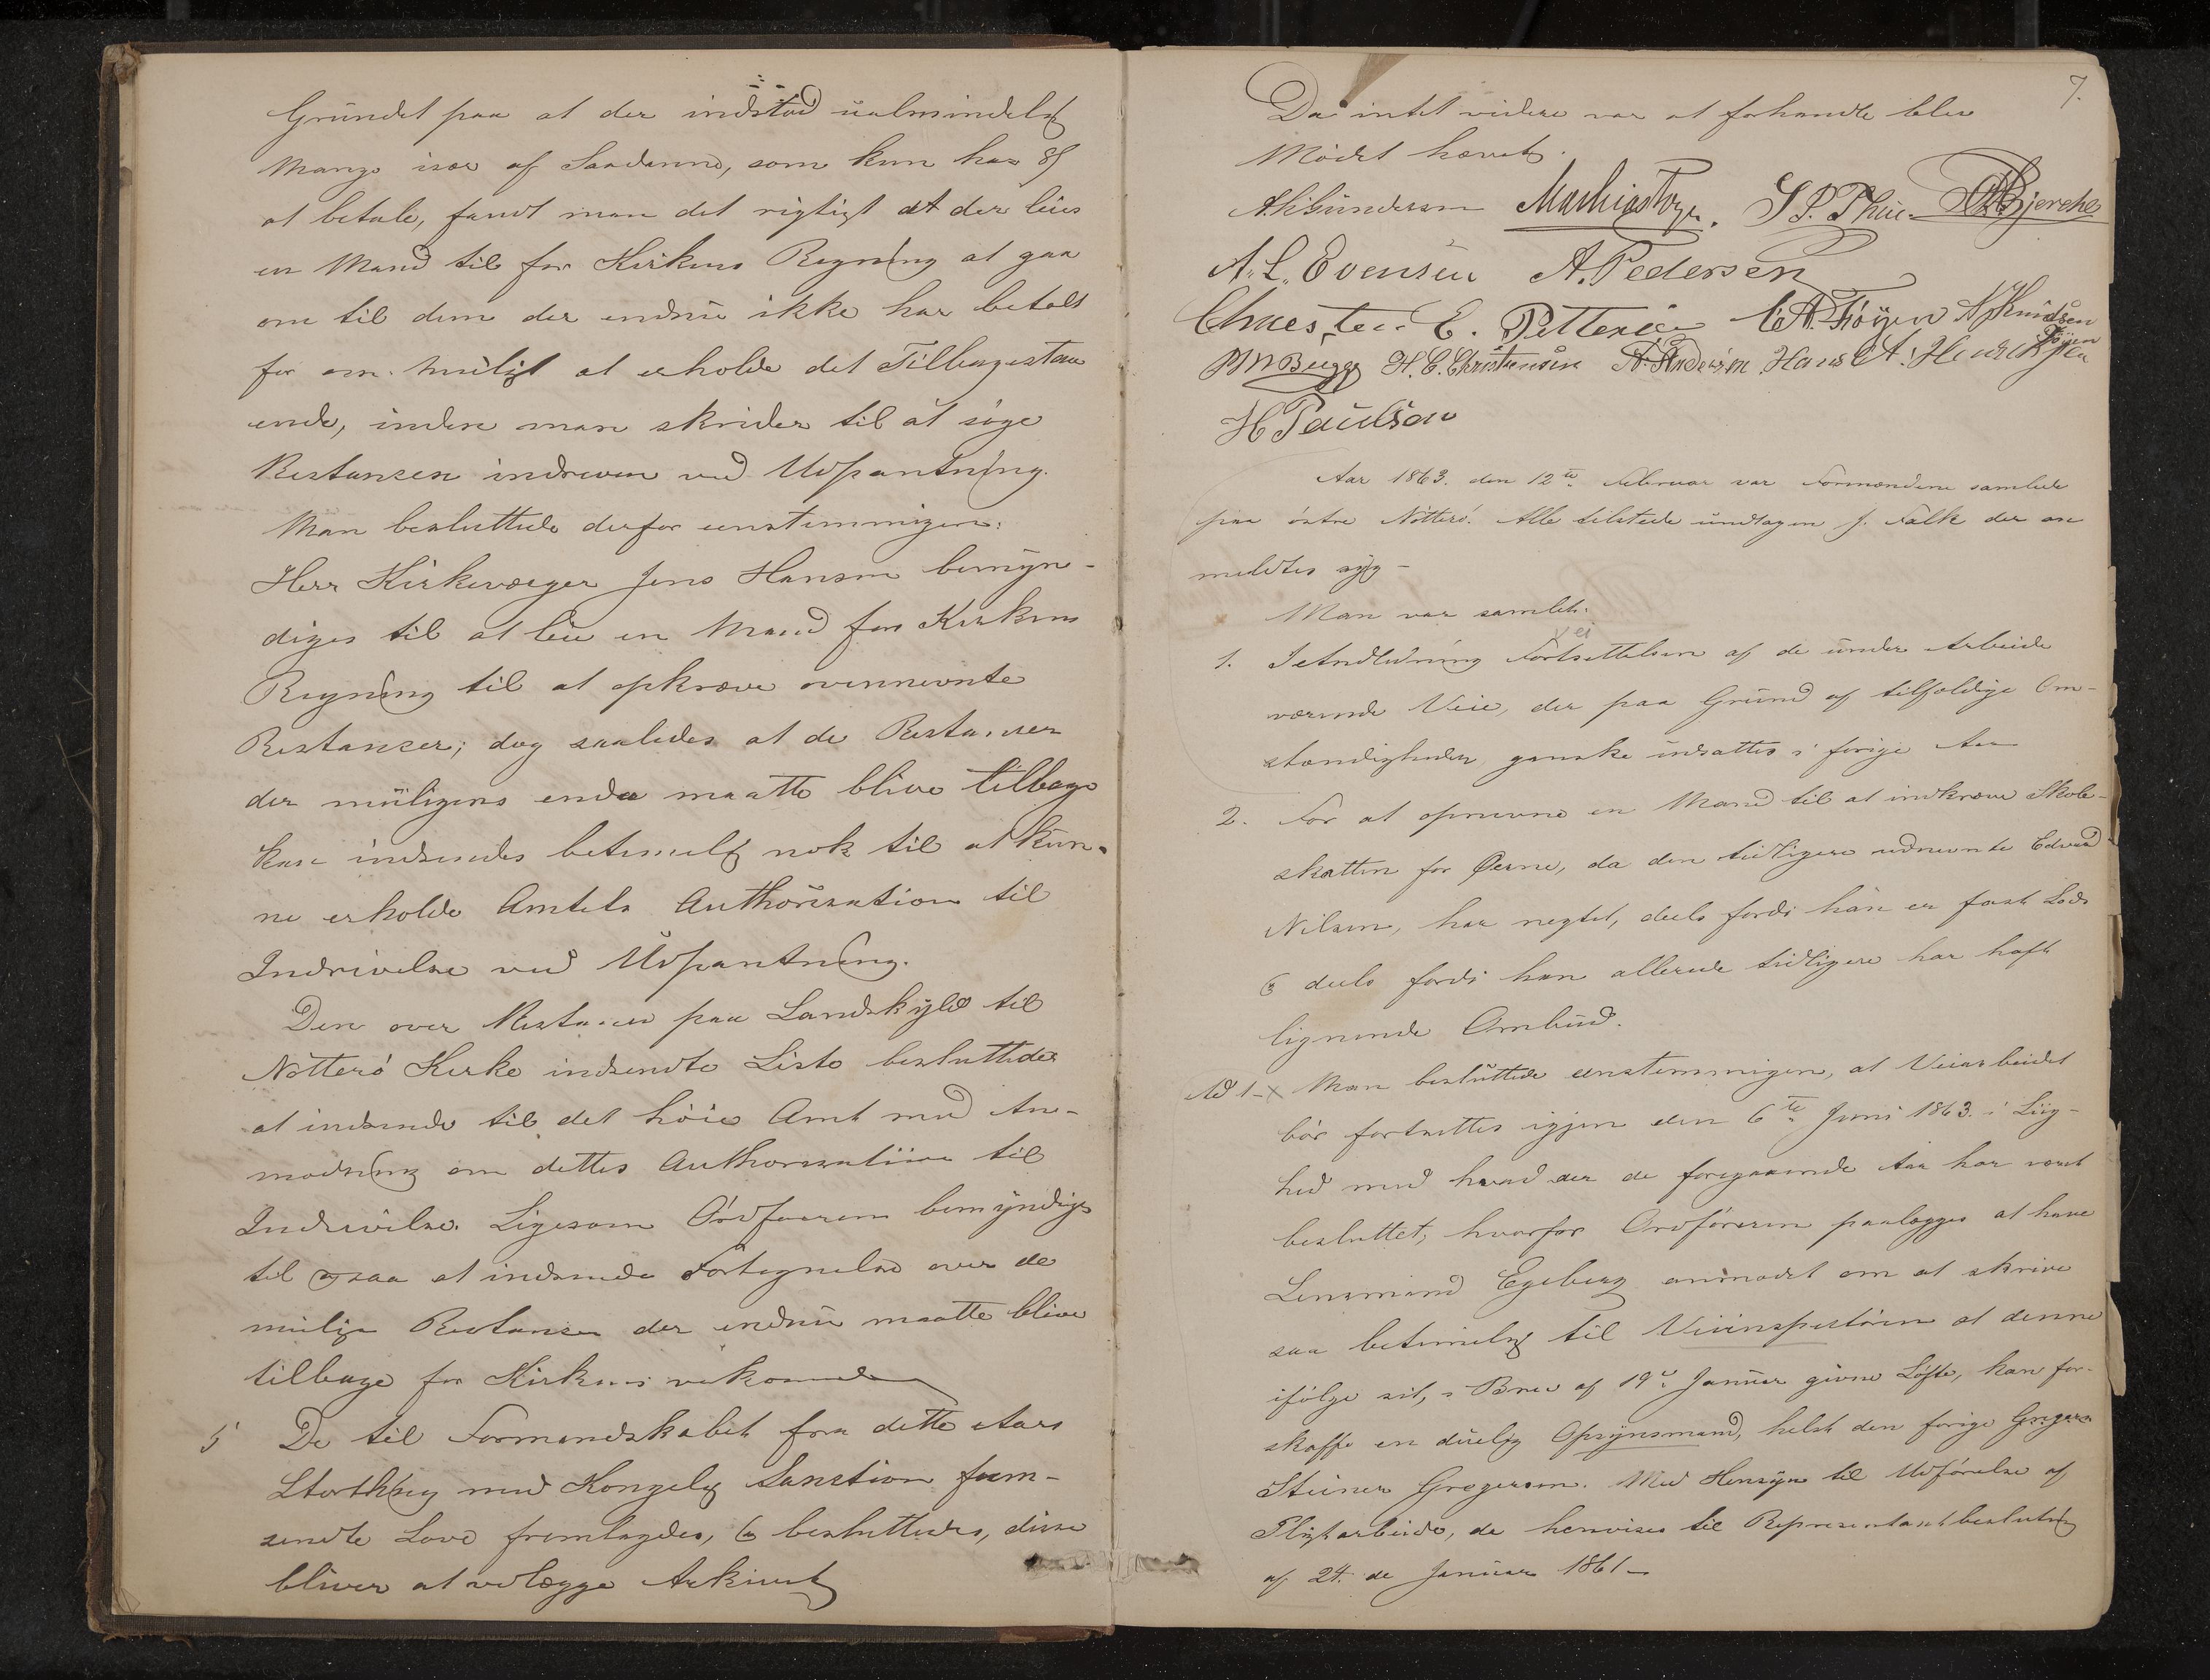 Grundet paa at der indstod ualmindelig
Mange især af Saadanne, som kun har 8 s
at betale, fandt man det rigtigt at der leies
en Mand til for Kirkens Regning at gaa
om til dem der endnu ikke har betalt
for om muligt at erholde det Tilbagestaa
ende, inden man skrider til at søge
Restansen inddreven ved Udpantning.
Man besluttede derfor eenstemmigen:
Herr Kirkeværger Jens Hansen bemyn-
diges til at leie en Mand for Kirkens
Regning til at opkræve ovennevnte
Restanser; dog saaledes at de Restanser
der muligens enda maatte blive tilbage
kan indsendes betimelig nok til at kun-
ne erholde Amtets Authorisation til
Inddrivelse ved Udpantning.
Den over Restanser paa Landskyld til
Nøtterø Kirke indsendte Liste besluttedes
at indsende til det høie Amt med An-
modning om dettes Authorisation til
Inddrivelse. Ligesom Ordføreren bemyndiges
til ogsaa at indsende Fortegnelse over de
mulige Restanser der endnu maatte blive
tilbage for Kirkens vekommende
5 De til Formandskabet fra dette Aars
Storthing med Kongelig Sanction frem-
sendte Love fremlagdes, og besluttedes, disse
bliver at vedlægge Arkivet
7.
Da intet videre var at forhandle blev
Mødet hævet.
A. H. Gundersen Mathias Foyn. S P. Thue. Bjerche
A. L. Evensen A. Pedersen
E. Petterson C A. Føyen N Knudsen
Føyen
M Bugge H. C. Christensen A. Andersen Hans A. Henriksen
H Paulsen
Aar 1863. den 12te Februar var Formændene samlede
paa østre Nøtterø. Alle tilstede undtagen J. Falk der an
meldtes syg -
Man var samlet:
vei
1. I Andledning Fortsettelsen af de under Arbeide
værende Veie, der paa Grund af tilfældige Om-
stændigheder ganske indsattes i forige Aar
2. For at opnevne en Mand til at indkræve Skole-
skatten for Øerne, da den tidligere udnevnte Edvard
Nilsen, har negtet, deels fordi han er fast Lods
og deels fordi han allerede tidligere har haft
lignende Ombud.
Ad 1 - x Man besluttede eenstemmigen, at Veiarbeidet
bør fortsettes igjen den 6te Juni 1863. i Liig-
hed med hvad der de foregaaende Aar har været
besluttet; hvorfor Ordføreren paalægges at have
Lensmand Egeberg anmodet om at skrive
saa betimelig til Veiinspectøren at denne
ifølge sit, i Brev af 19de Januar givne Løfte, kan for-
skaffe en duelig Opsynsmand, helst den forige Gregers
Steiner Gregersen. Med Hensyn til Udførelse af
Pligtarbeide, da henvises til Representantbeslutning
af 24. de Januar 1861 -